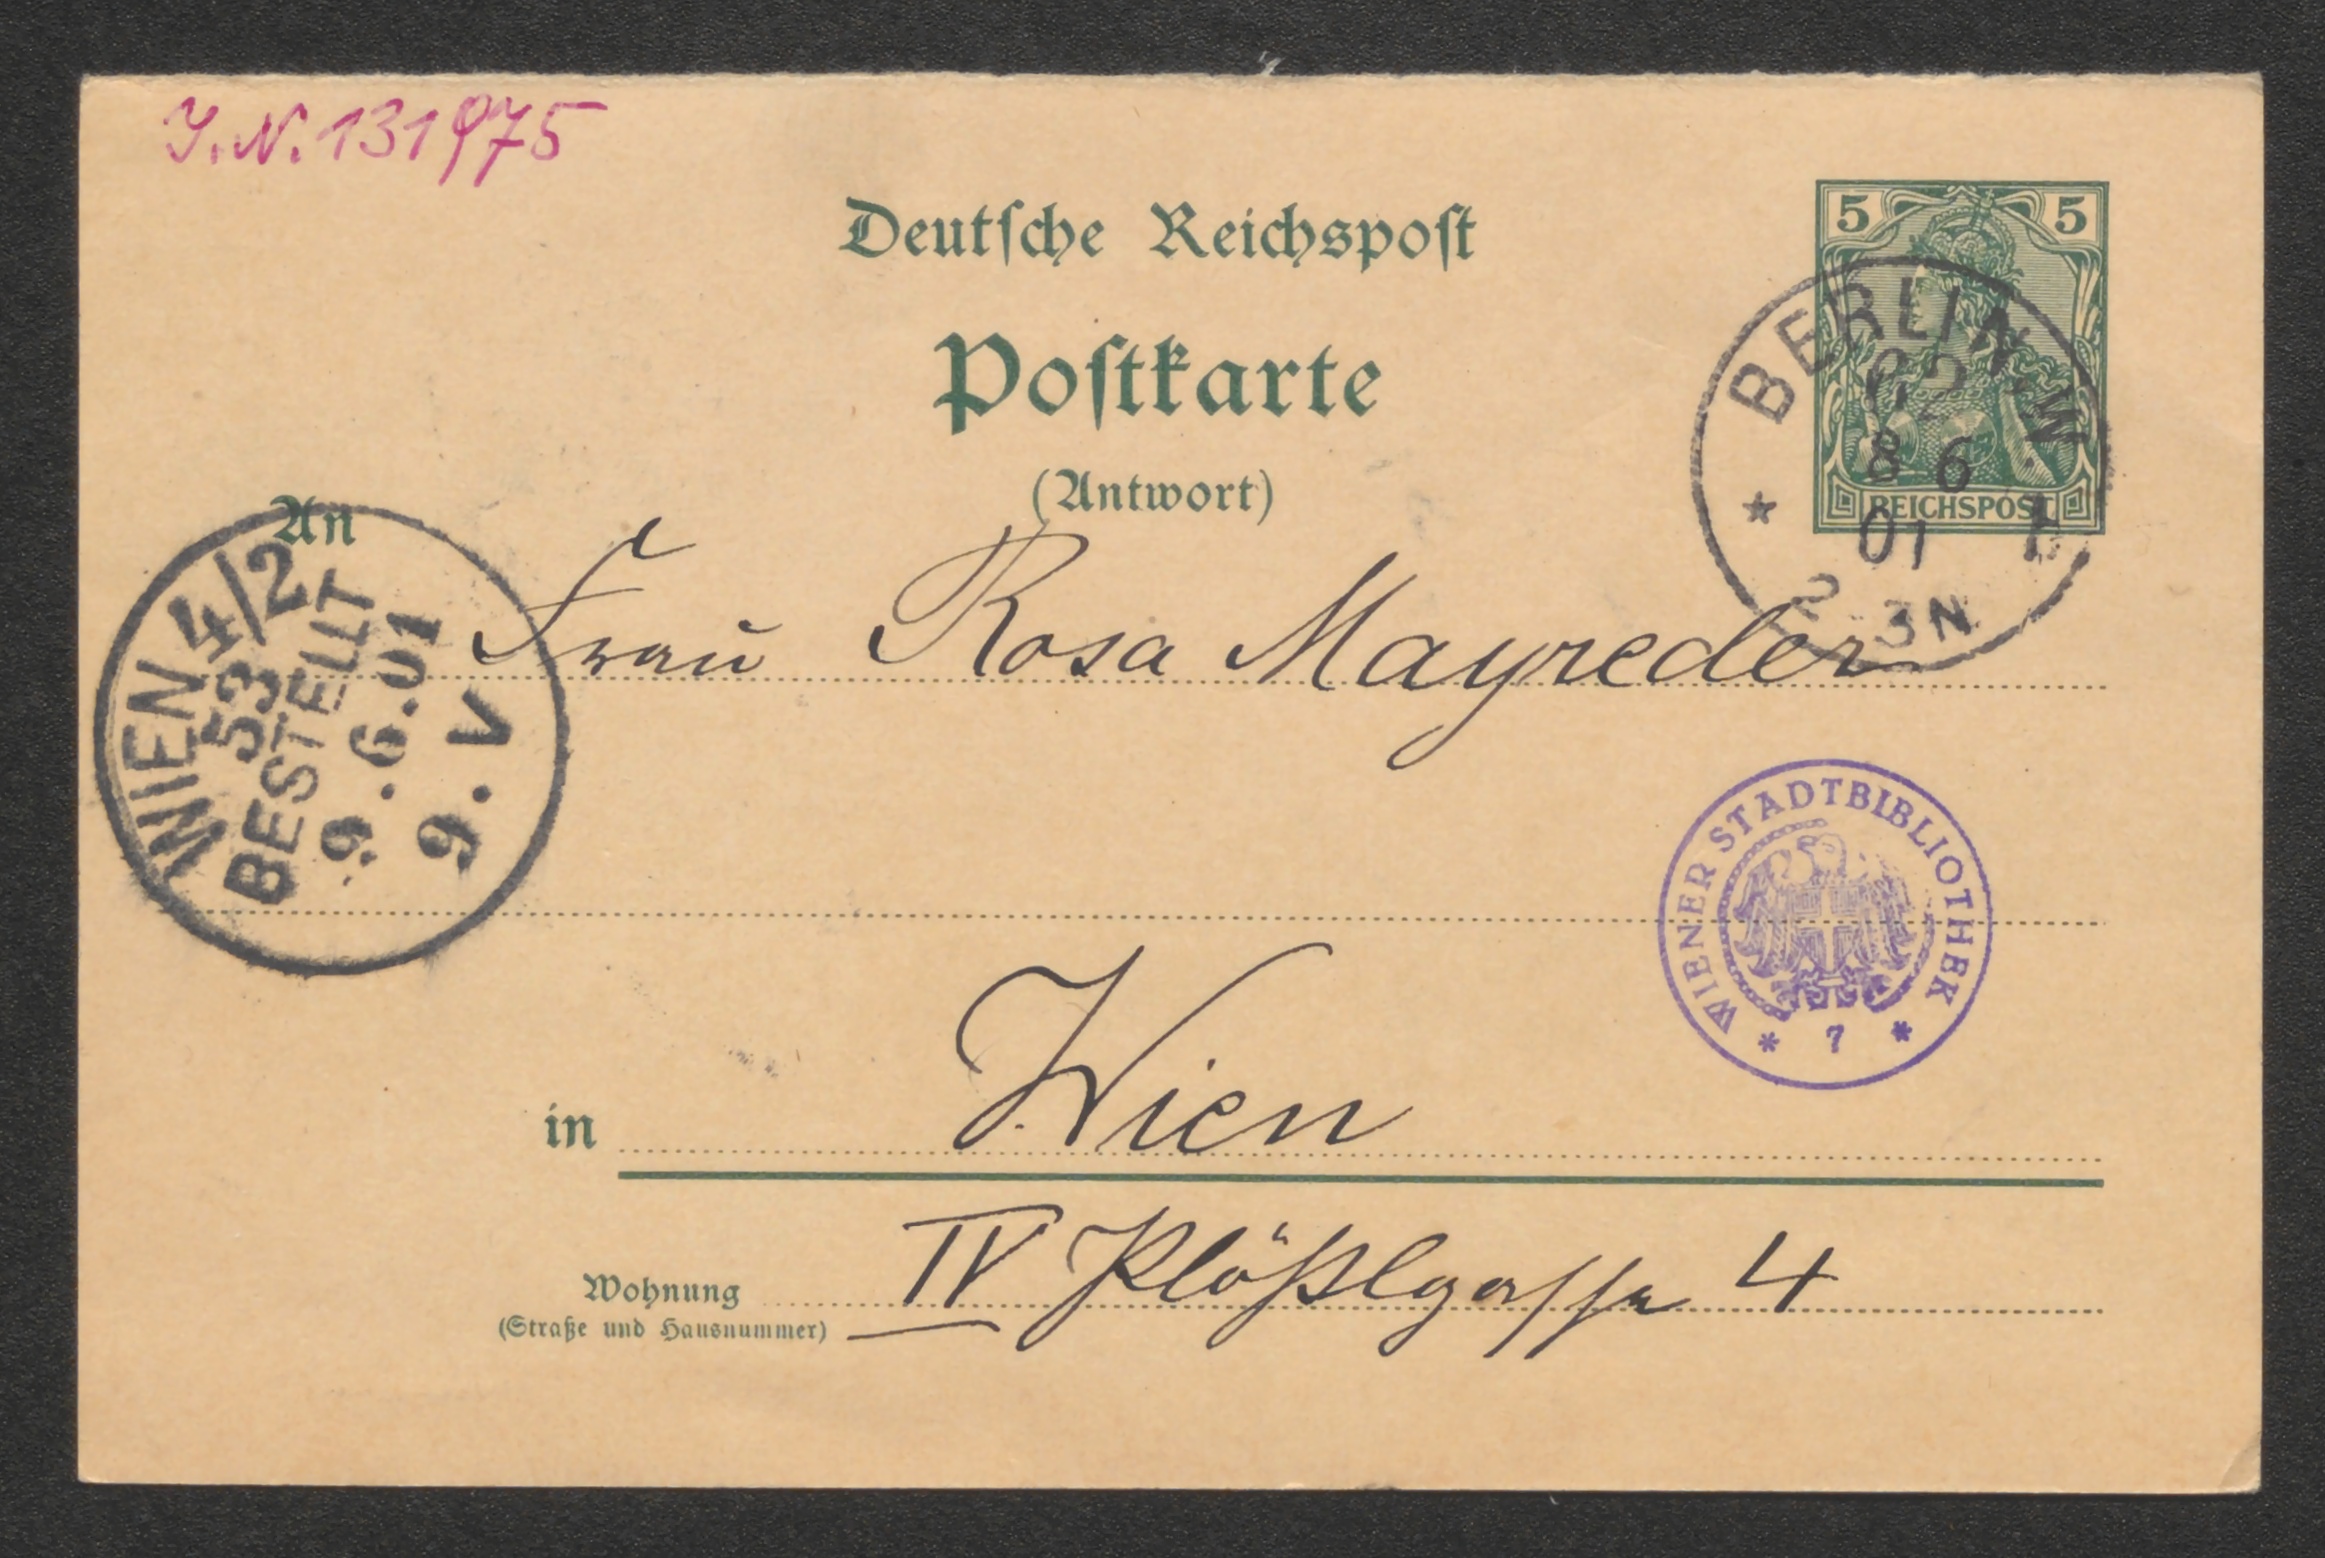 J.N. 131975
Deutsche Reichspost
5 5
Postkarte
REICHSPOST
(Antwort)
BERLIN. W
62
8 6
01
2-3N
An
Frau Rosa Mayreder
WIEN 4/2
53
BESTELLT
9.6.01
9.V
WIENER STADTBIBLIOTHEK
* 7 *
in Wien
Wohnung IV Plößlgasse 4
(Straße und Hausnummer)